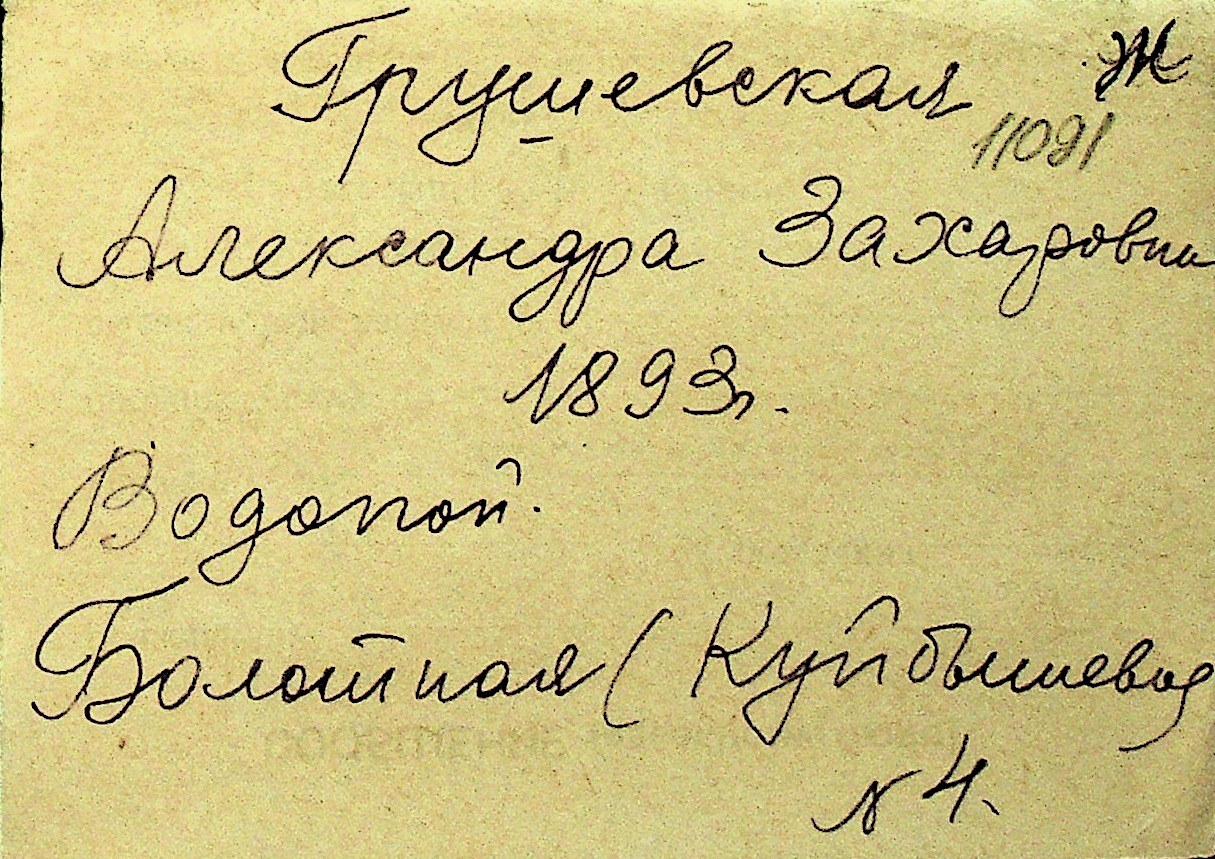 Грушевская Ж
11091
Александра Захаровна
1893г.
Водопой.
Болотная (Куйбышева)
№ 4.